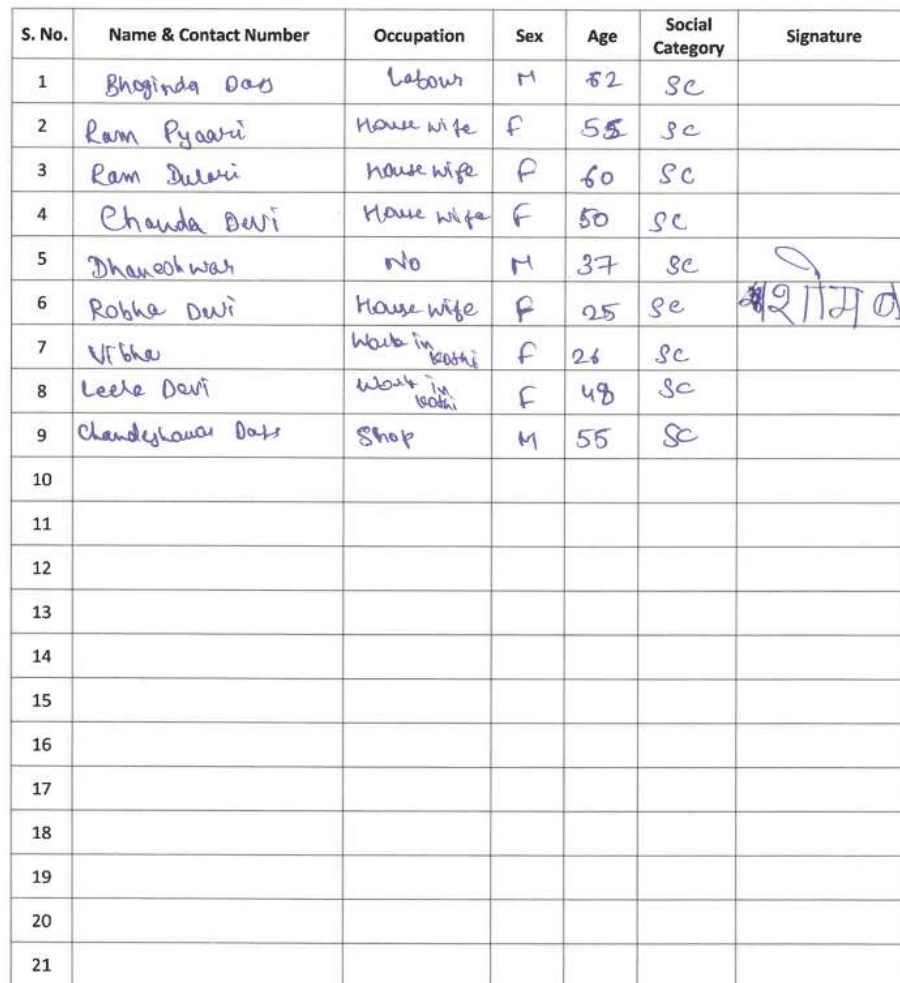 S. No. Name & Contact Number Occupation Sex Age Social Category Signature
1 Bhoginda Das Labour M 62 SC
2 Ram Pyaari House wife F 55 SC
3 Ram Dulari House wife F 60 SC
4 Chanda Devi House wife F 50 SC
5 Dhaneshwar No M 37 SC
6 Robha Devi House wife F 25 SC
7 Vibha Work in Kothi F 26 SC
8 Leela Devi Work in Kothi F 48 SC
9 Chandeshawar Dass Shop M 55 SC
10
11
12
13
14
15
16
17
18
19
20
21